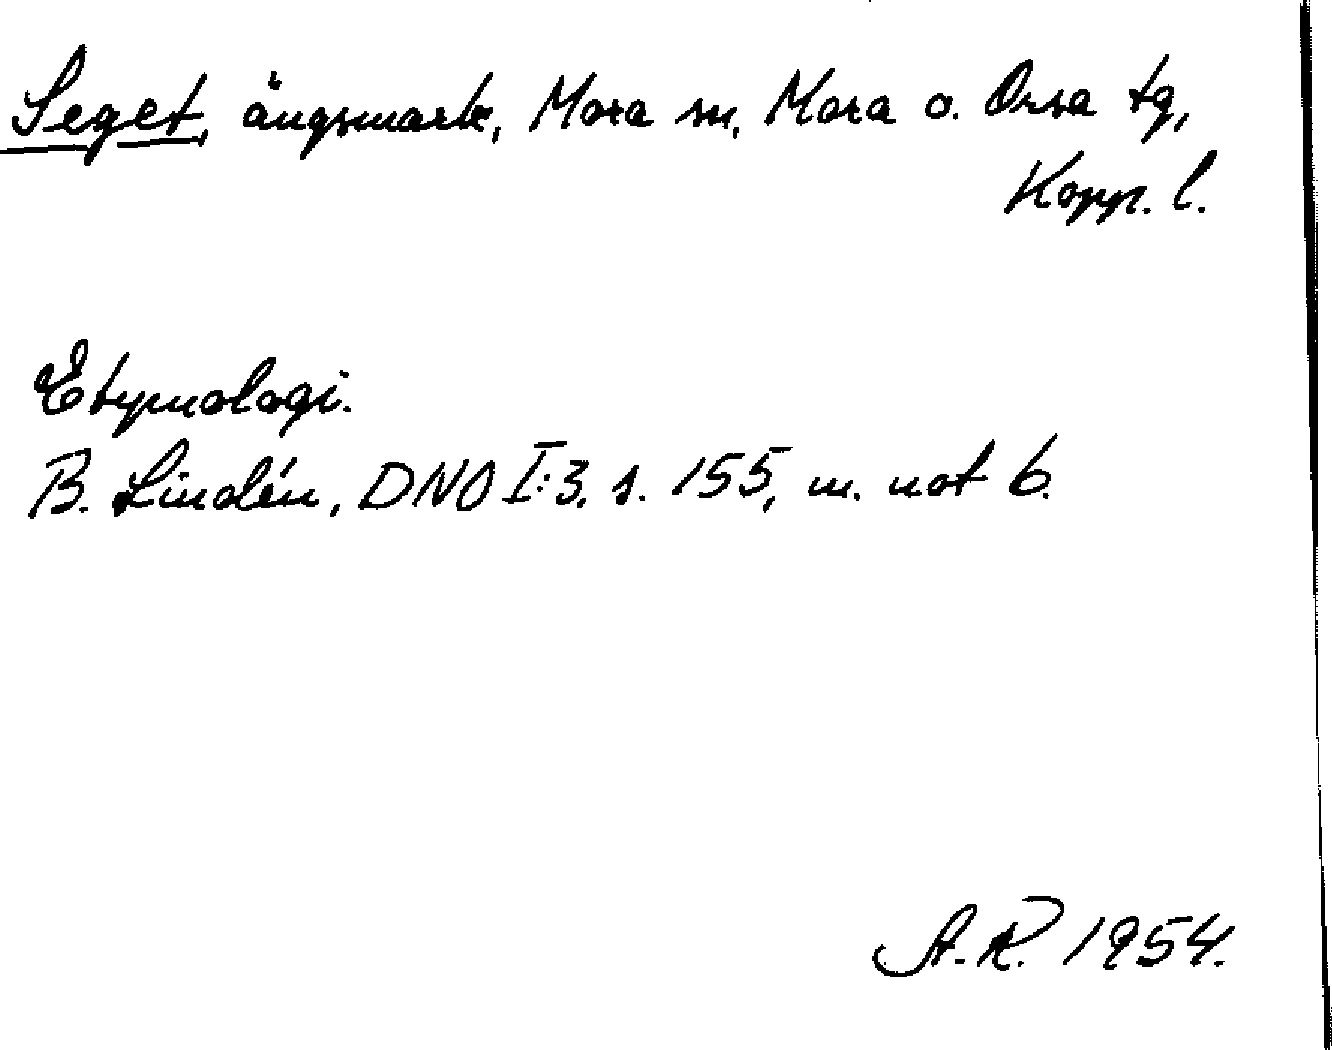 Seget, ängsmark, Mora sn, Mora o. Orsa tg,
Kopp. l.
Etymologi.
B. Lindén, DNO I:3, s. 155, m. not 6.
A.R. 1954.